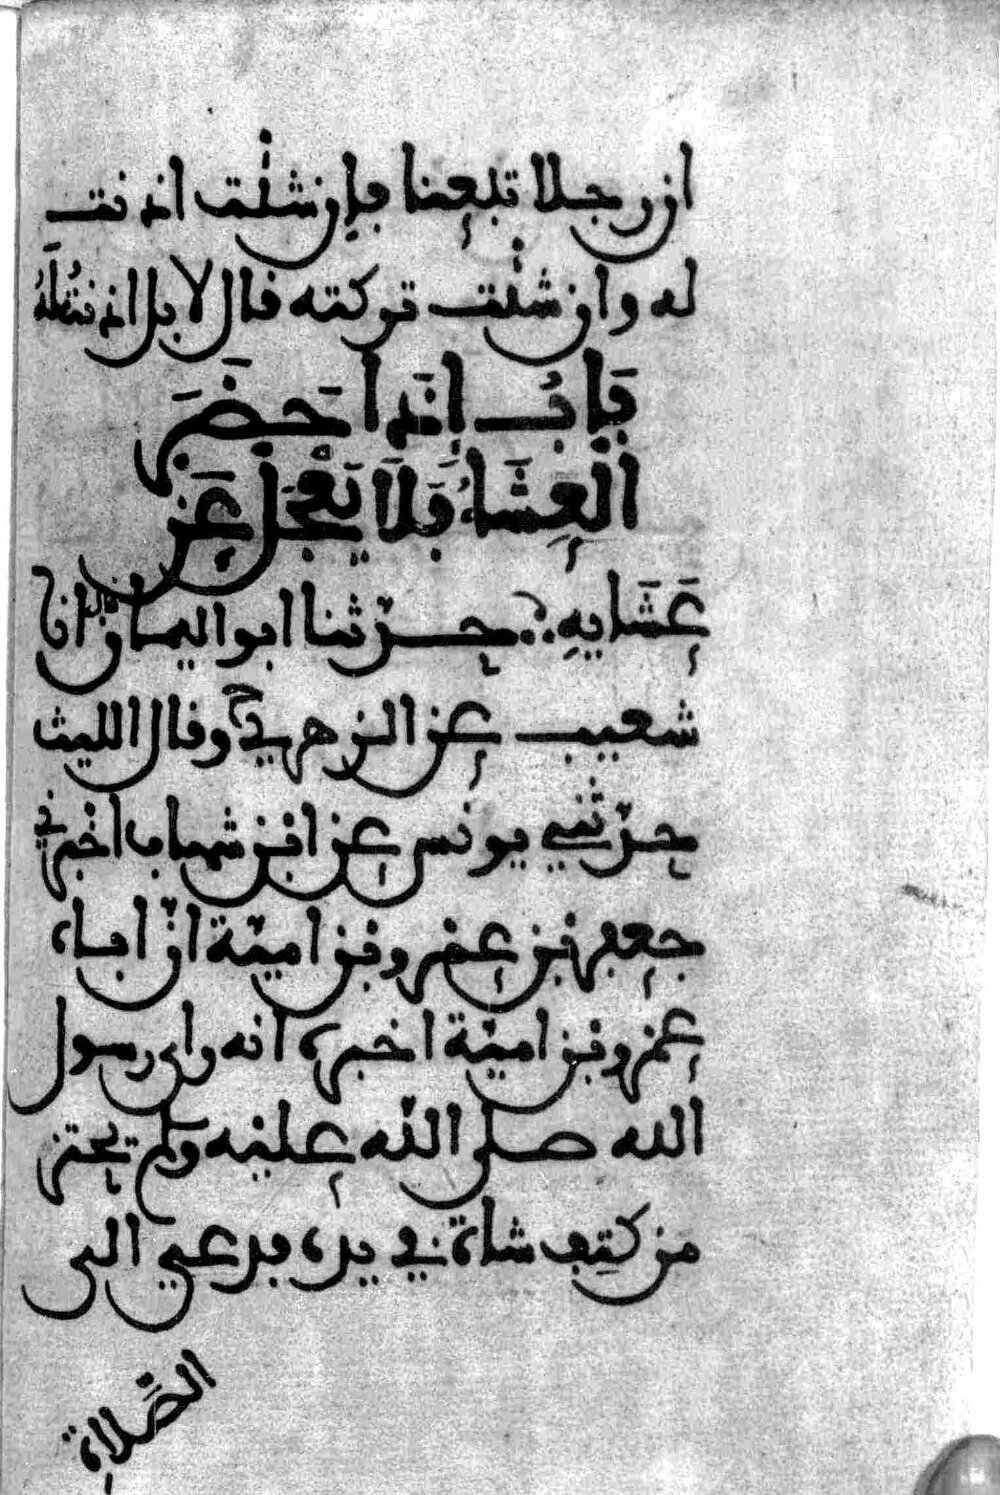 ان رجلا تبعنا فإن شئت اذنت
له وان شئت تركته قال لا بل اذنت له
بَاب إِذَا حَضَرَ
العِشَاءُ فَلَا يَعْجَل عَن
عَشَايِهِ حدثنا ابو اليمان قال انا
شعيب عن الزهري وقال الليث
حدثني يونس عن ابن شهاب اخبرني
جعفر بن عمرو بن امية ان اباه
عمرو بن امية اخبره انه راى رسول
الله صلى الله عليه وسلم يحتز
من كتف شاة في يده فدعي الى
الصلاة